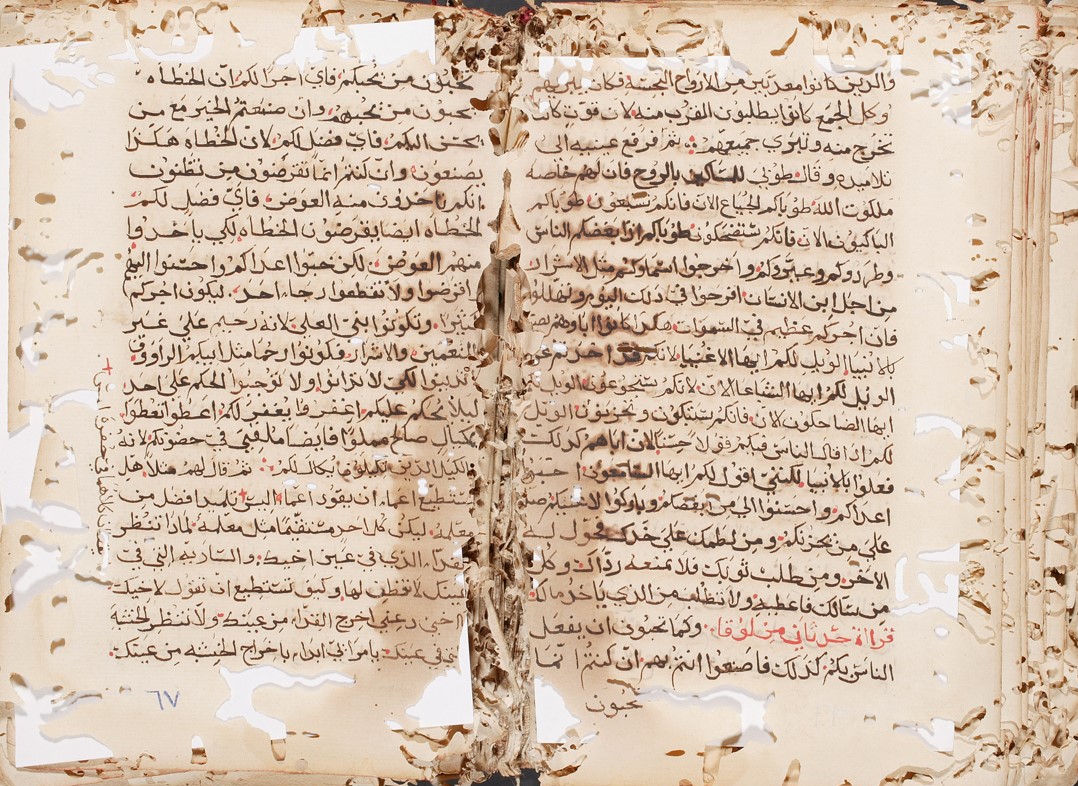 والذين كانوا معذبين من الارواح النجسة وكان يبريهم
وكل الجمع كانوا يطلبون القرب منه لان قوة كانت
تخرج منه وتبري جميعهم ثم رفع عينيه الى
تلاميذه وقال طوبى للمساكين بالروح فان لهم خاصه
ملكوت الله طوباكم ايها الجياع الان فانكم تشبعون طوباكم
الباكيون الان فانكم ستضحكون طوباكم اذا بغضكم الناس
وطردوكم وعيروكم واخرجوا اسماوكم مثل الاشرار
من اجل ابن الانسان افرحوا في ذلك اليوم وتهللوا
فان اجركم عظيم في السموات هكذا كانوا اباوهم
بالانبيا الويل لكم ايها الاغنيا لانكم قد اخذتم
الويل لكم ايها الشباعا الان لانكم ستجوعون الويل
ايها الضاحكون الان فانكم ستبكون وتحزنون الويل
لكم اذا قال الناس فيكم قولا حسنا لان اباهم كذلك
فعلوا بالانبيا لكني اقول لكم ايها السامعون احبوا
اعداكم واحسنوا الى من ابغضكم وباركوا لاعنيكم
على من يحزنكم ومن لطمك على خدك فحول له
الاخر ومن طلب ثوبك فلا تمنعه رداك وكل
من سالك فاعطيه ولا تطلب من الذي ياخذ مالك
قراة حد ثاني من لوقا وكما تحبون ان يفعل
الناس بكم كذلك فاصنعوا انتم بهم ان كنتم انما
تحبون
تحبون من يحبكم فاي اجرا لكم ان الخطاه
يحبون من يحبهم وان صنعتم الخير مع من
يحسن اليكم فاي فضل لكم لان الخطاه هكذا
يصنعون وان كنتم انما تقرضون من تظنون
انكم تاخذون منه العوض فاي فضل لكم
الخطاه ايضا يقرضون الخطاه لكي ياخذوا
منهم العوض لكن حبوا اعداكم واحسنوا اليهم
اقرضوا ولا تقطعوا رجاء احد ليكون اجركم
كثيرا وتكونوا بني العلي لانه رحيم على غير
المنعمين والاشرار فكونوا رحما مثل ابيكم الراوف
تدينوا لكي لا تدانوا ولا توجبوا الحكم على احد
ليلا يحكم عليكم اغفروا يغفر لكم اعطوا تعطوا
بمكيال صالح مملوا فايضا ملقي في حضونكم لانه
بالكيل الذي تكيلوا يكال لكم ثم قال لهم مثلا هل
يستطيع اعما ان يقود اعما اليس تلميذ افضل من
معلمه ليكن كل احد مستقيما مثل معلمه لماذا تنظر
القذاء الذي في عين اخيك والساريه التي في
عينك لا تفطن لها وكيف تستطيع ان تقول لاخيك
اخي دعني اخرج القذاء من عينك ولا تنظر الخشبة
التي في عينك يا مرائي ابداء باخراج الخشبه من عينك
٦٧